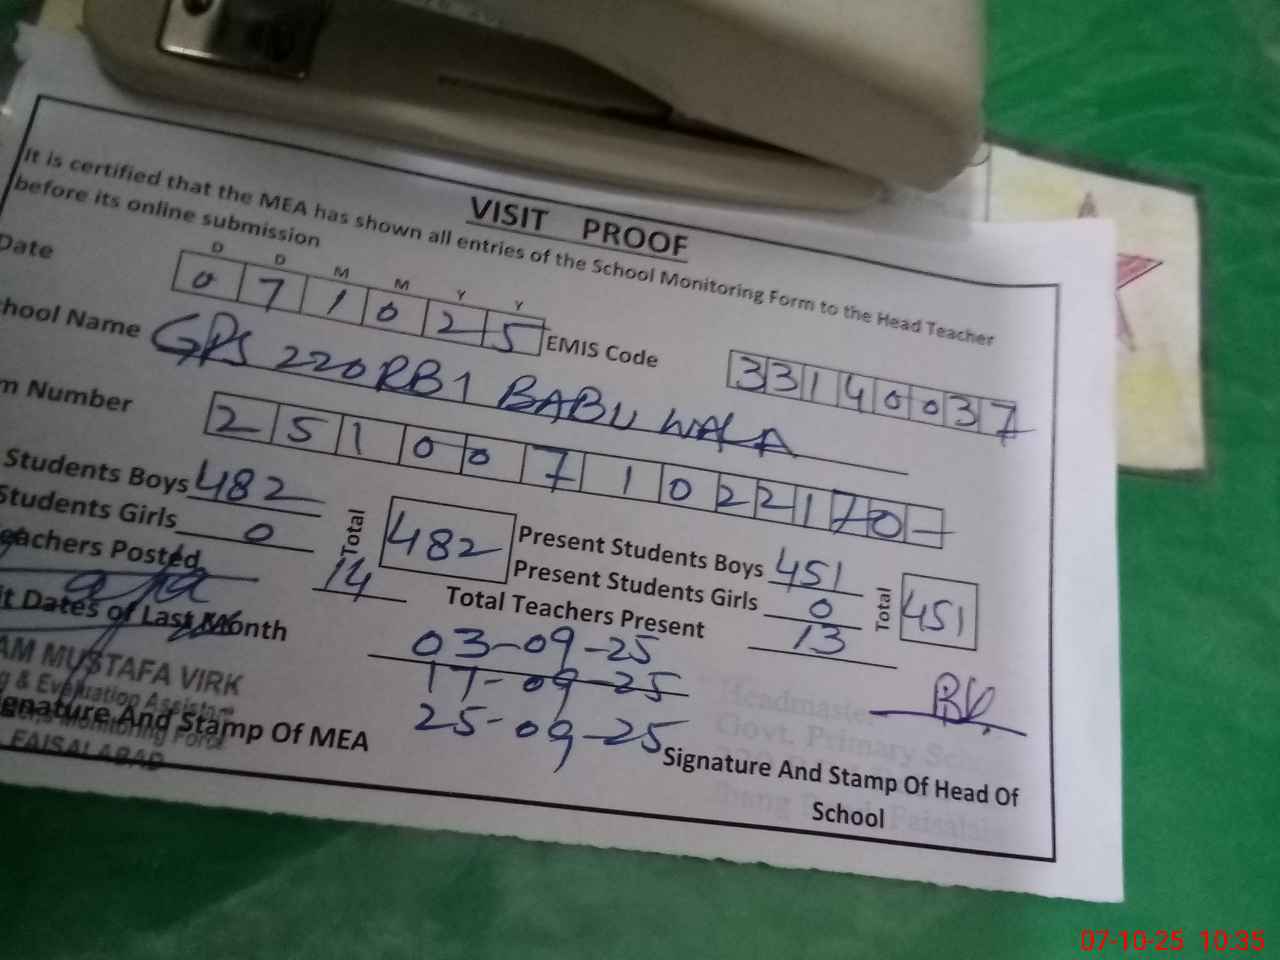 VISIT PROOF
It is certified that the MEA has shown all entries of the School Monitoring Form to the Head Teacher
before its online submission
Date D D M M Y Y
0 7 1 0 2 5 EMIS Code 3 3 1 4 0 0 3 7
hool Name GPS 220 RB 1 BABU WALA
m Number 2 5 1 0 0 7 1 0 2 2 1 7 0 -
Students Boys 482 Total 482 Present Students Boys 451 Total 451
Students Girls 0 Present Students Girls 0
eachers Posted 14 Total Teachers Present 13
it Dates of Last Month 03-09-25
17-09-25
25-09-25
AM MUSTAFA VIRK
g & Evaluation Assistant
Monitoring Force
FAISALABAD
gnature And Stamp Of MEA
Headmaster
Govt. Primary
Signature And Stamp Of Head Of
School
07-10-25 10:35